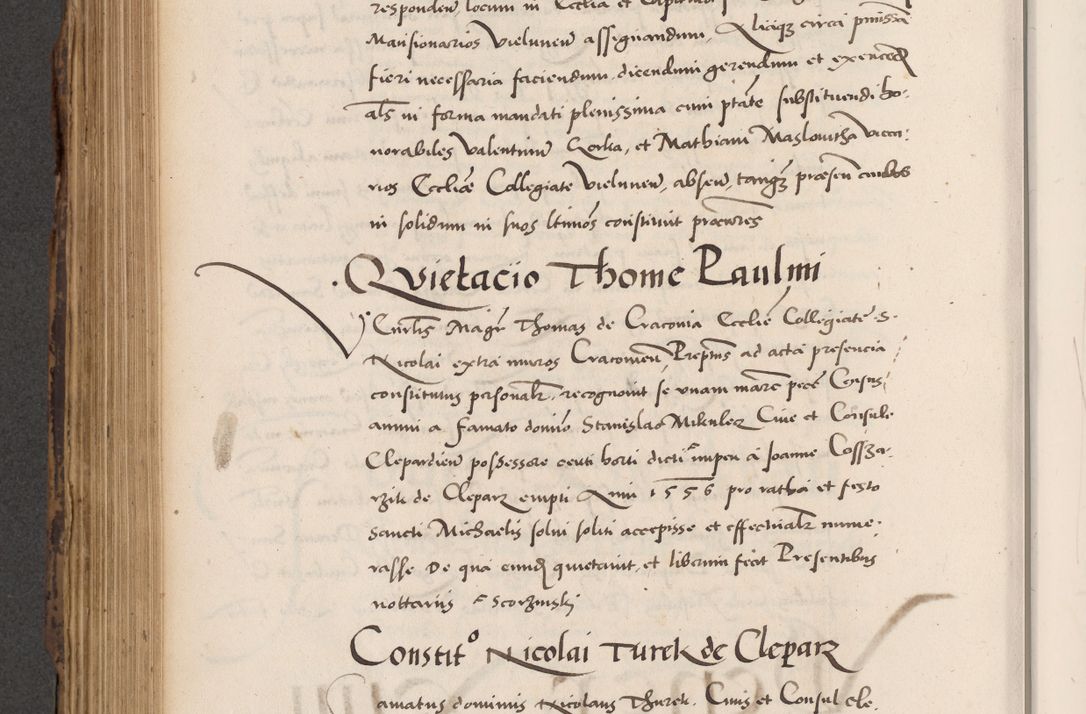 responden locum in Ecclia et Capitulo
Mansionarios Vielunen assignandum, Aliaq circa pmissa
fieri necessaria faciendum, dicendum gerendum et exercend
als in forma mandati plenissima cum ptate substituendi ho-
norabiles Valentinu Gorka, et Mathiam Maslowitha Vica-
rios Eccliæ Collegiate Vielunen, absen, tanq præsen ambos
in solidum in suos ltimos constituit procures
Quietacio Thome Paulini
Veñlis Magr Thomas de Cracouia Ecclie Collegiate S.
Nicolai extra muros Cracouien Prepтus ad acta presencia
constitutus personalr, recognouit se vnam marc pec Census
annui a famato domino Stanislao Mikuler Ciue et Consule
Clepardien possessore centi horti dicti impen a Joanne Cossza-
rzik de Clepars empti Anni 1556 pro ratha et festo
Sancti Michaelis solui soliti accepisse et effectualr nume-
rasse De qua eund quietauit, et liberum fecit Presentibus
nottariis F Scorzinski
Constit° Nicolai Turek de Clepars
amatus dominus Nicolaus Thurek, Ciuis et Consul Cle-